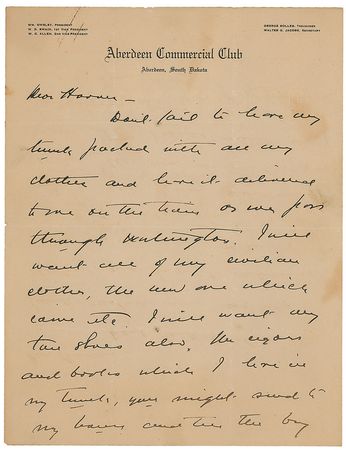 WM. OWSLEY, PRESIDENT
W. G. ALLEN, 2ND VICE PRESIDENT
GEORGE ROLLES, TREASURER
WALTER G. JACOBS, SECRETARY
Aberdeen Commercial Club
Aberdeen, South Dakota
Dear Hoover –
Don't fail to have my
trunk packed with all my
clothes and have it delivered
to me on the train as we pass
through Washington. I will
want all of my civilian
clothes, the new one which
came etc. I will want my
tan shoes also. The cigars
and books which I have in
my trunk, you might send to
my house and the